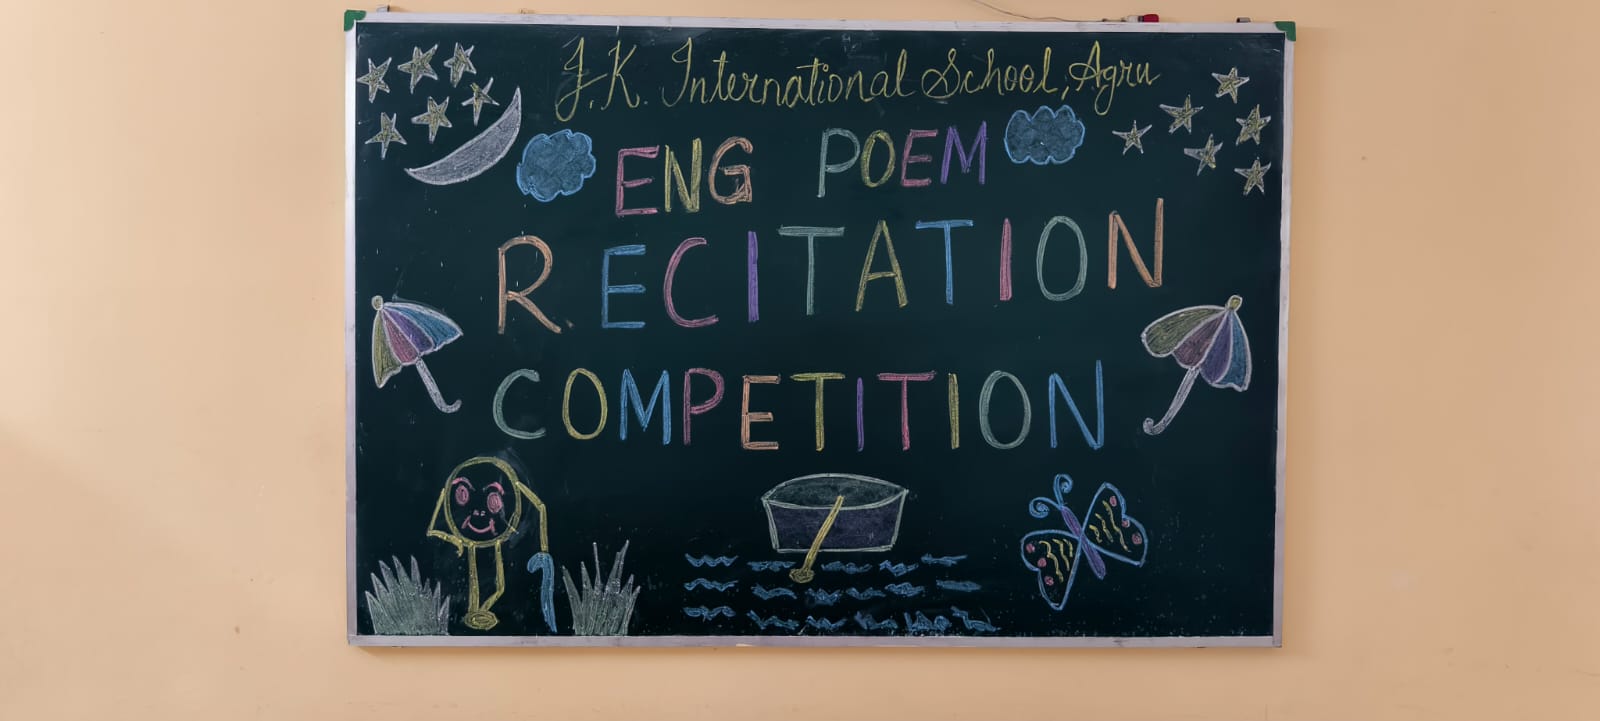 J.K. International School, Agru
ENG POEM
RECITATION
COMPETITION